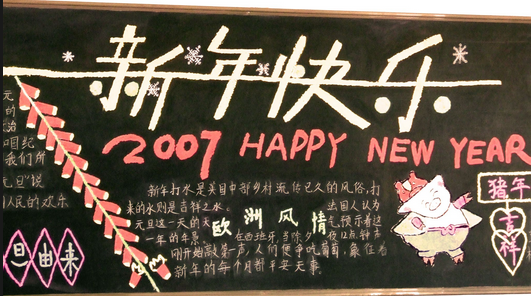 新年快乐
2007 HAPPY NEW YEAR
元
的
治
日纪
我们所
元旦"说
人民的欢乐
旦由来
新年打水是美国中部乡村流传已久的风俗,打
来的水则是吉祥之水
出国人认为
元旦这一天的天
气预示着这
一年的年景
欧洲风情
在西班牙,当除夕
12点钟声
刚开始敲第一声,人们便争吃葡萄,象征着
新年的每个月都平安无事
猪年
吉祥